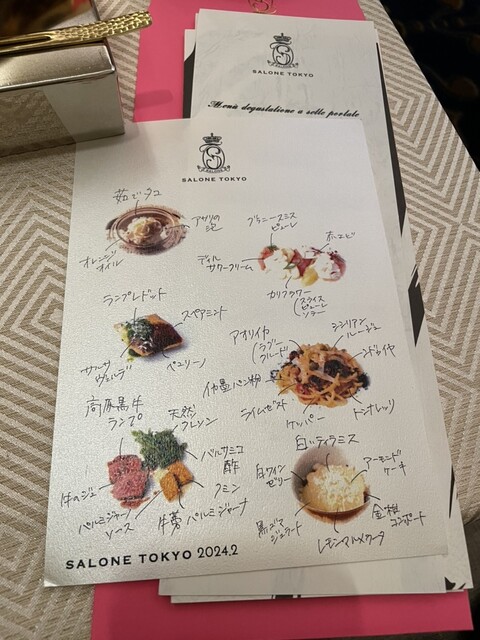 SALONE TOKYO
Menù degustazione a sette portate
SALONE TOKYO
茹でダコ
アサリの
泡
オレンジ
オイル
グラニースミス
ピューレ
赤エビ
ディル
サワークリーム
カリフラワー
スライス
ピューレ
ソテー
ランプレドット
スペアミント
サルサ
ヴェルデ
ペコリーノ
アオリイカ
ラグー
クルード
シシリアン
ルージュ
ンドゥイヤ
パン粉
ライムゼスト
ケッパー
トンナレッリ
高原黒牛
ランプ
天然
クレソン
バルサミコ
酢
クミン
牛のジュ
パルミジャーノ
ソース
牛蒡パルミジャーナ
白いティラミス
白ワイン
ゼリー
アーモンド
ケーキ
黒ユズ
ジェラート
レモンマルメラータ
金柑
コンポート
SALONE TOKYO 2024.2